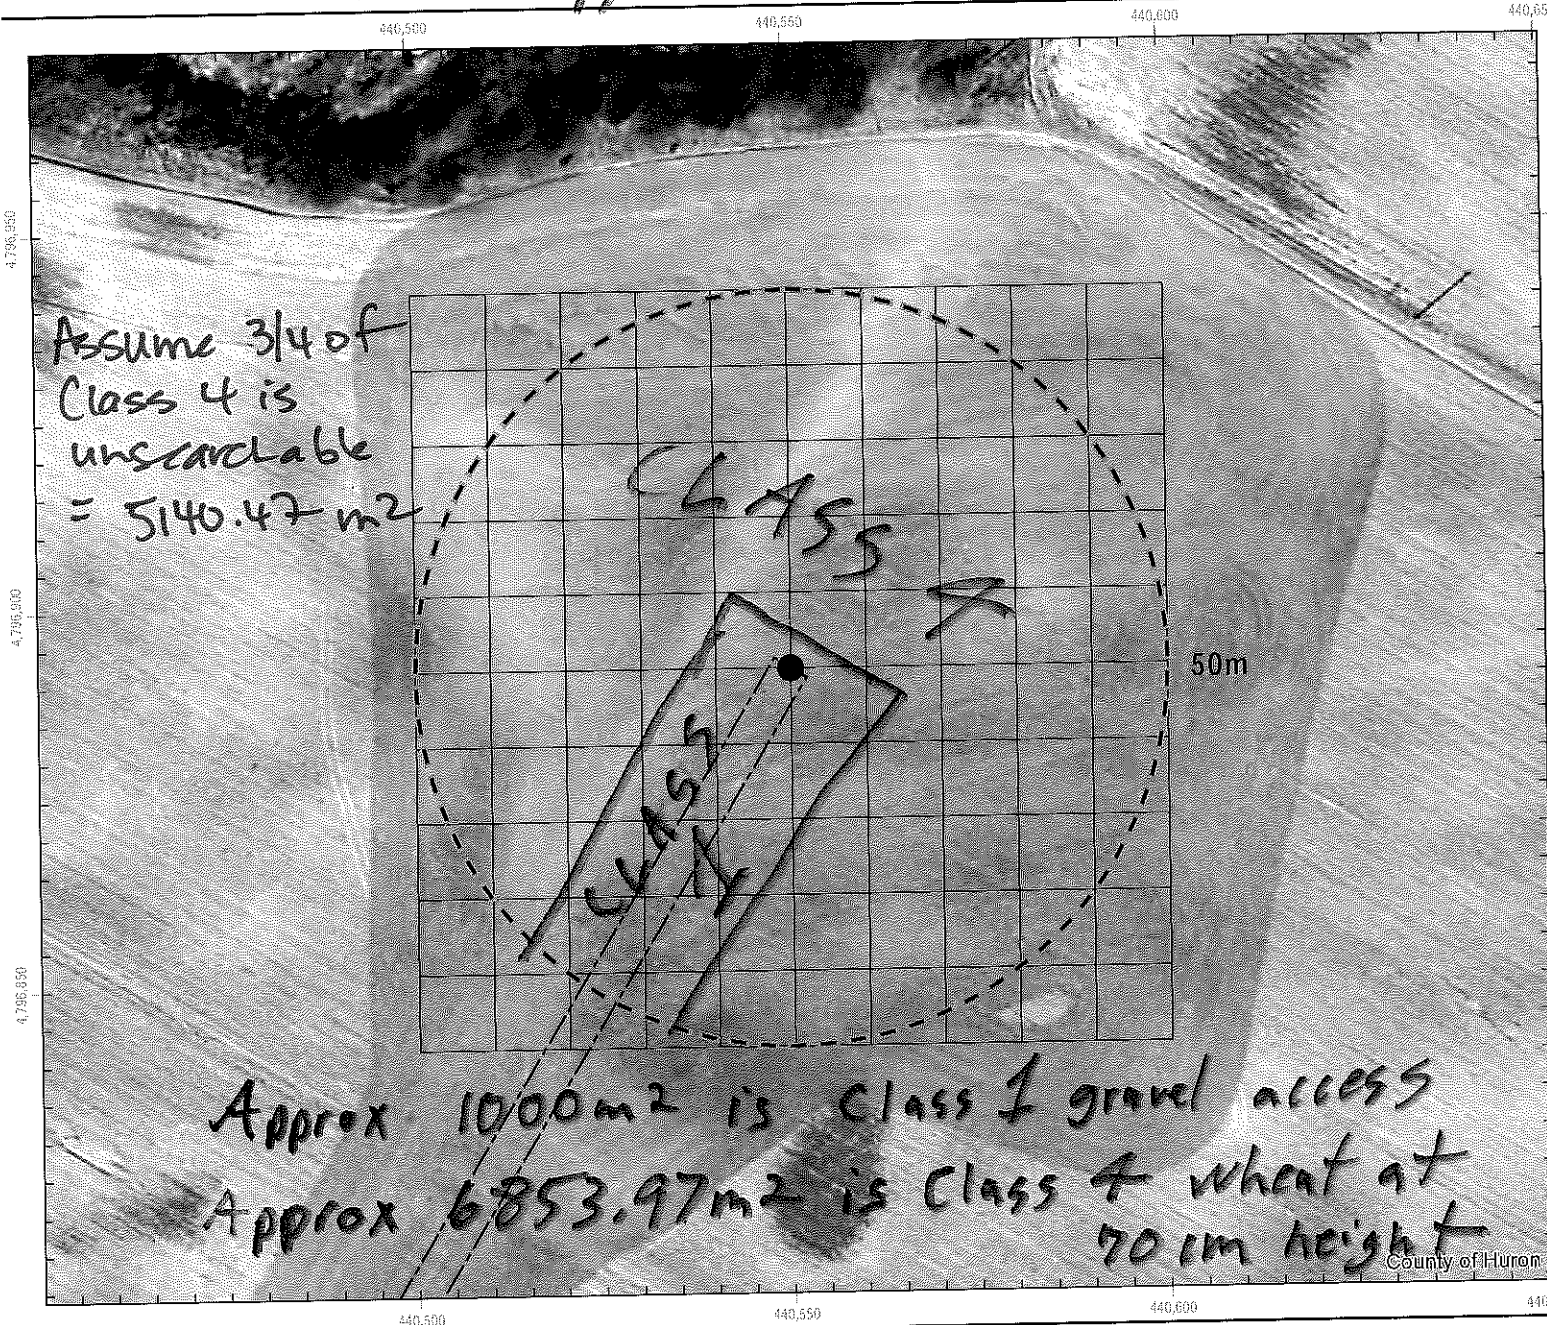 440,500 440,550 440,600 440,65
4,796,950
4,796,900
4,796,850
Assume 3/4 of
Class 4 is
unsearchable
= 5140.47 m2
CLASS 4
50m
CLASS
Approx 1000m2 is Class 1 gravel access
Approx 6853.97m2 is Class 4 wheat at
70 cm height
County of Huron
440,500 440,550 440,600 440